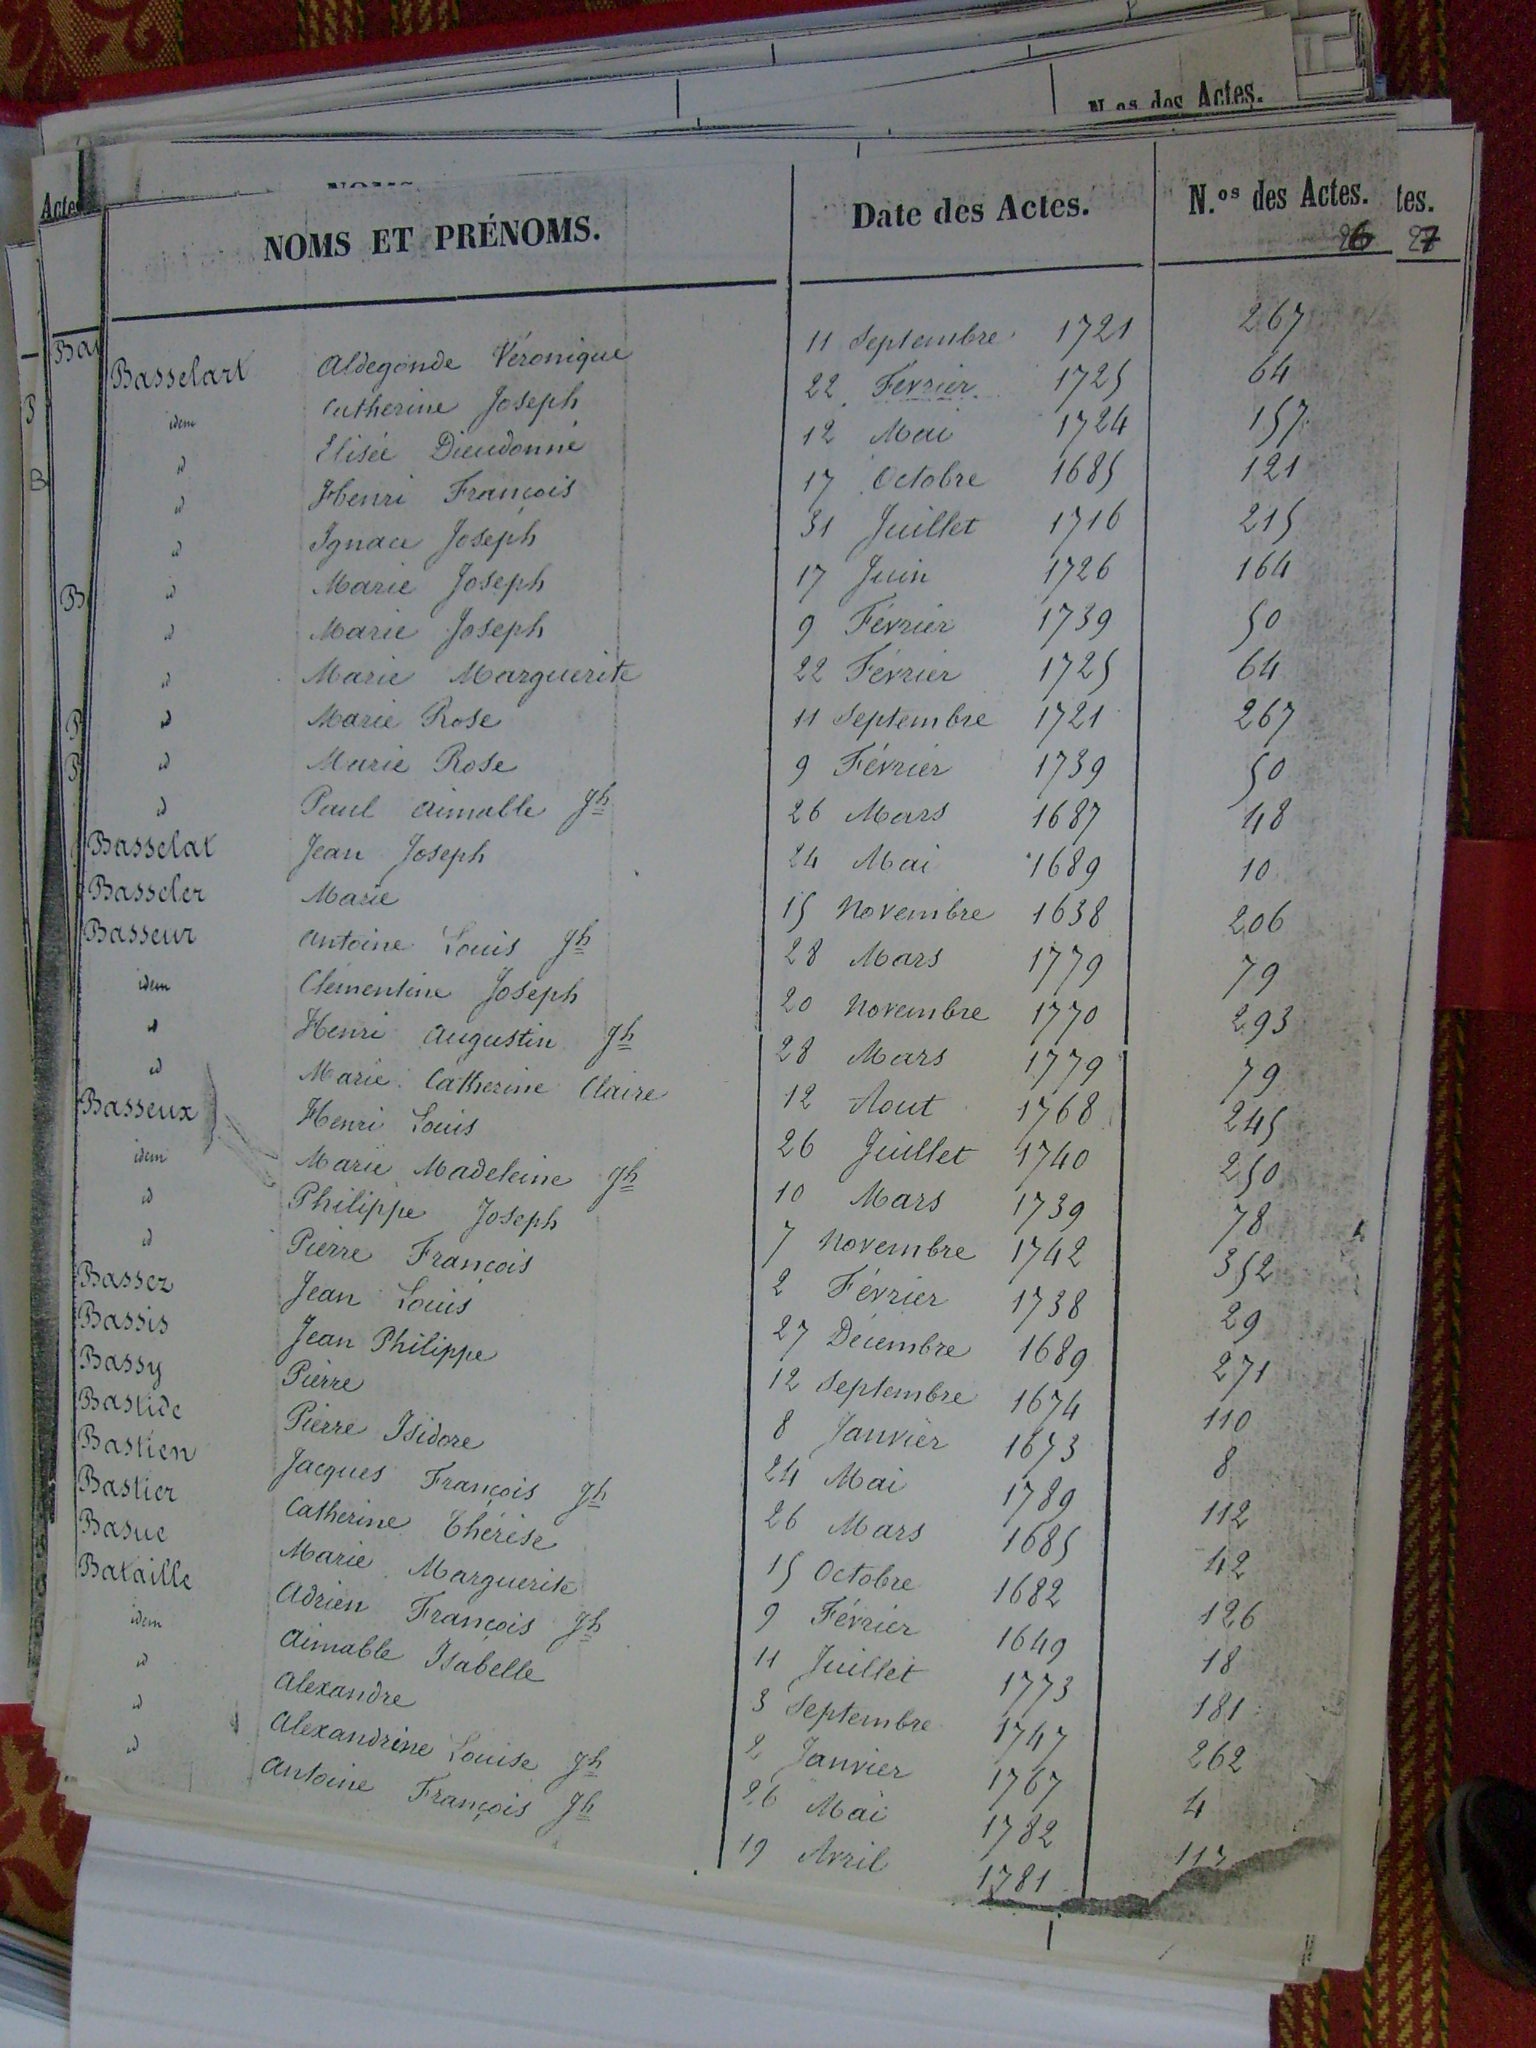 N.os des Actes.
Actes
tes.
27
NOMS ET PRÉNOMS. Date des Actes. N.os des Actes.
26
Basselart Aldegonde Véronique 11 Septembre 1721 267
idem Catherine Joseph 22 Février 1725 64
id Elisée Dieudonné 12 Mai 1724 157
id Henri François 17 Octobre 1685 121
id Ignace Joseph 31 Juillet 1716 215
id Marie Joseph 17 Juin 1726 164
id Marie Joseph 9 Février 1739 50
id Marie Marguerite 22 Février 1725 64
id Marie Rose 11 Septembre 1721 267
id Marie Rose 9 Février 1739 50
id Paul Aimable Jh 26 Mars 1687 48
Basselat Jean Joseph 24 Mai 1689 10
Basseler Marie 15 Novembre 1638 206
Basseur Antoine Louis Jh 28 Mars 1779 79
idem Clémentine Joseph 20 Novembre 1770 293
id Henri Augustin Jh 28 Mars 1779 79
id Marie Catherine Claire 12 Aout 1768 245
Basseux Henri Louis 26 Juillet 1740 250
idem Marie Madeleine Jh 10 Mars 1739 78
id Philippe Joseph 7 Novembre 1742 352
id Pierre François 2 Février 1738 29
Bassez Jean Louis 27 Décembre 1689 271
Bassis Jean Philippe 12 Septembre 1674 110
Bassy Pierre 8 Janvier 1673 8
Bastide Pierre Isidore 24 Mai 1789 112
Bastien Jacques François Jh 26 Mars 1685 42
Bastier Catherine Thérèse 15 Octobre 1682 126
Basue Marie Marguerite 9 Février 1649 18
Bataille Adrien François Jh 11 Juillet 1773 181
idem Aimable Isabelle 3 Septembre 1747 262
id Alexandre 2 Janvier 1767 4
id Alexandrine Louise Jh 26 Mai 1782
id Antoine François Jh 19 Avril 1781